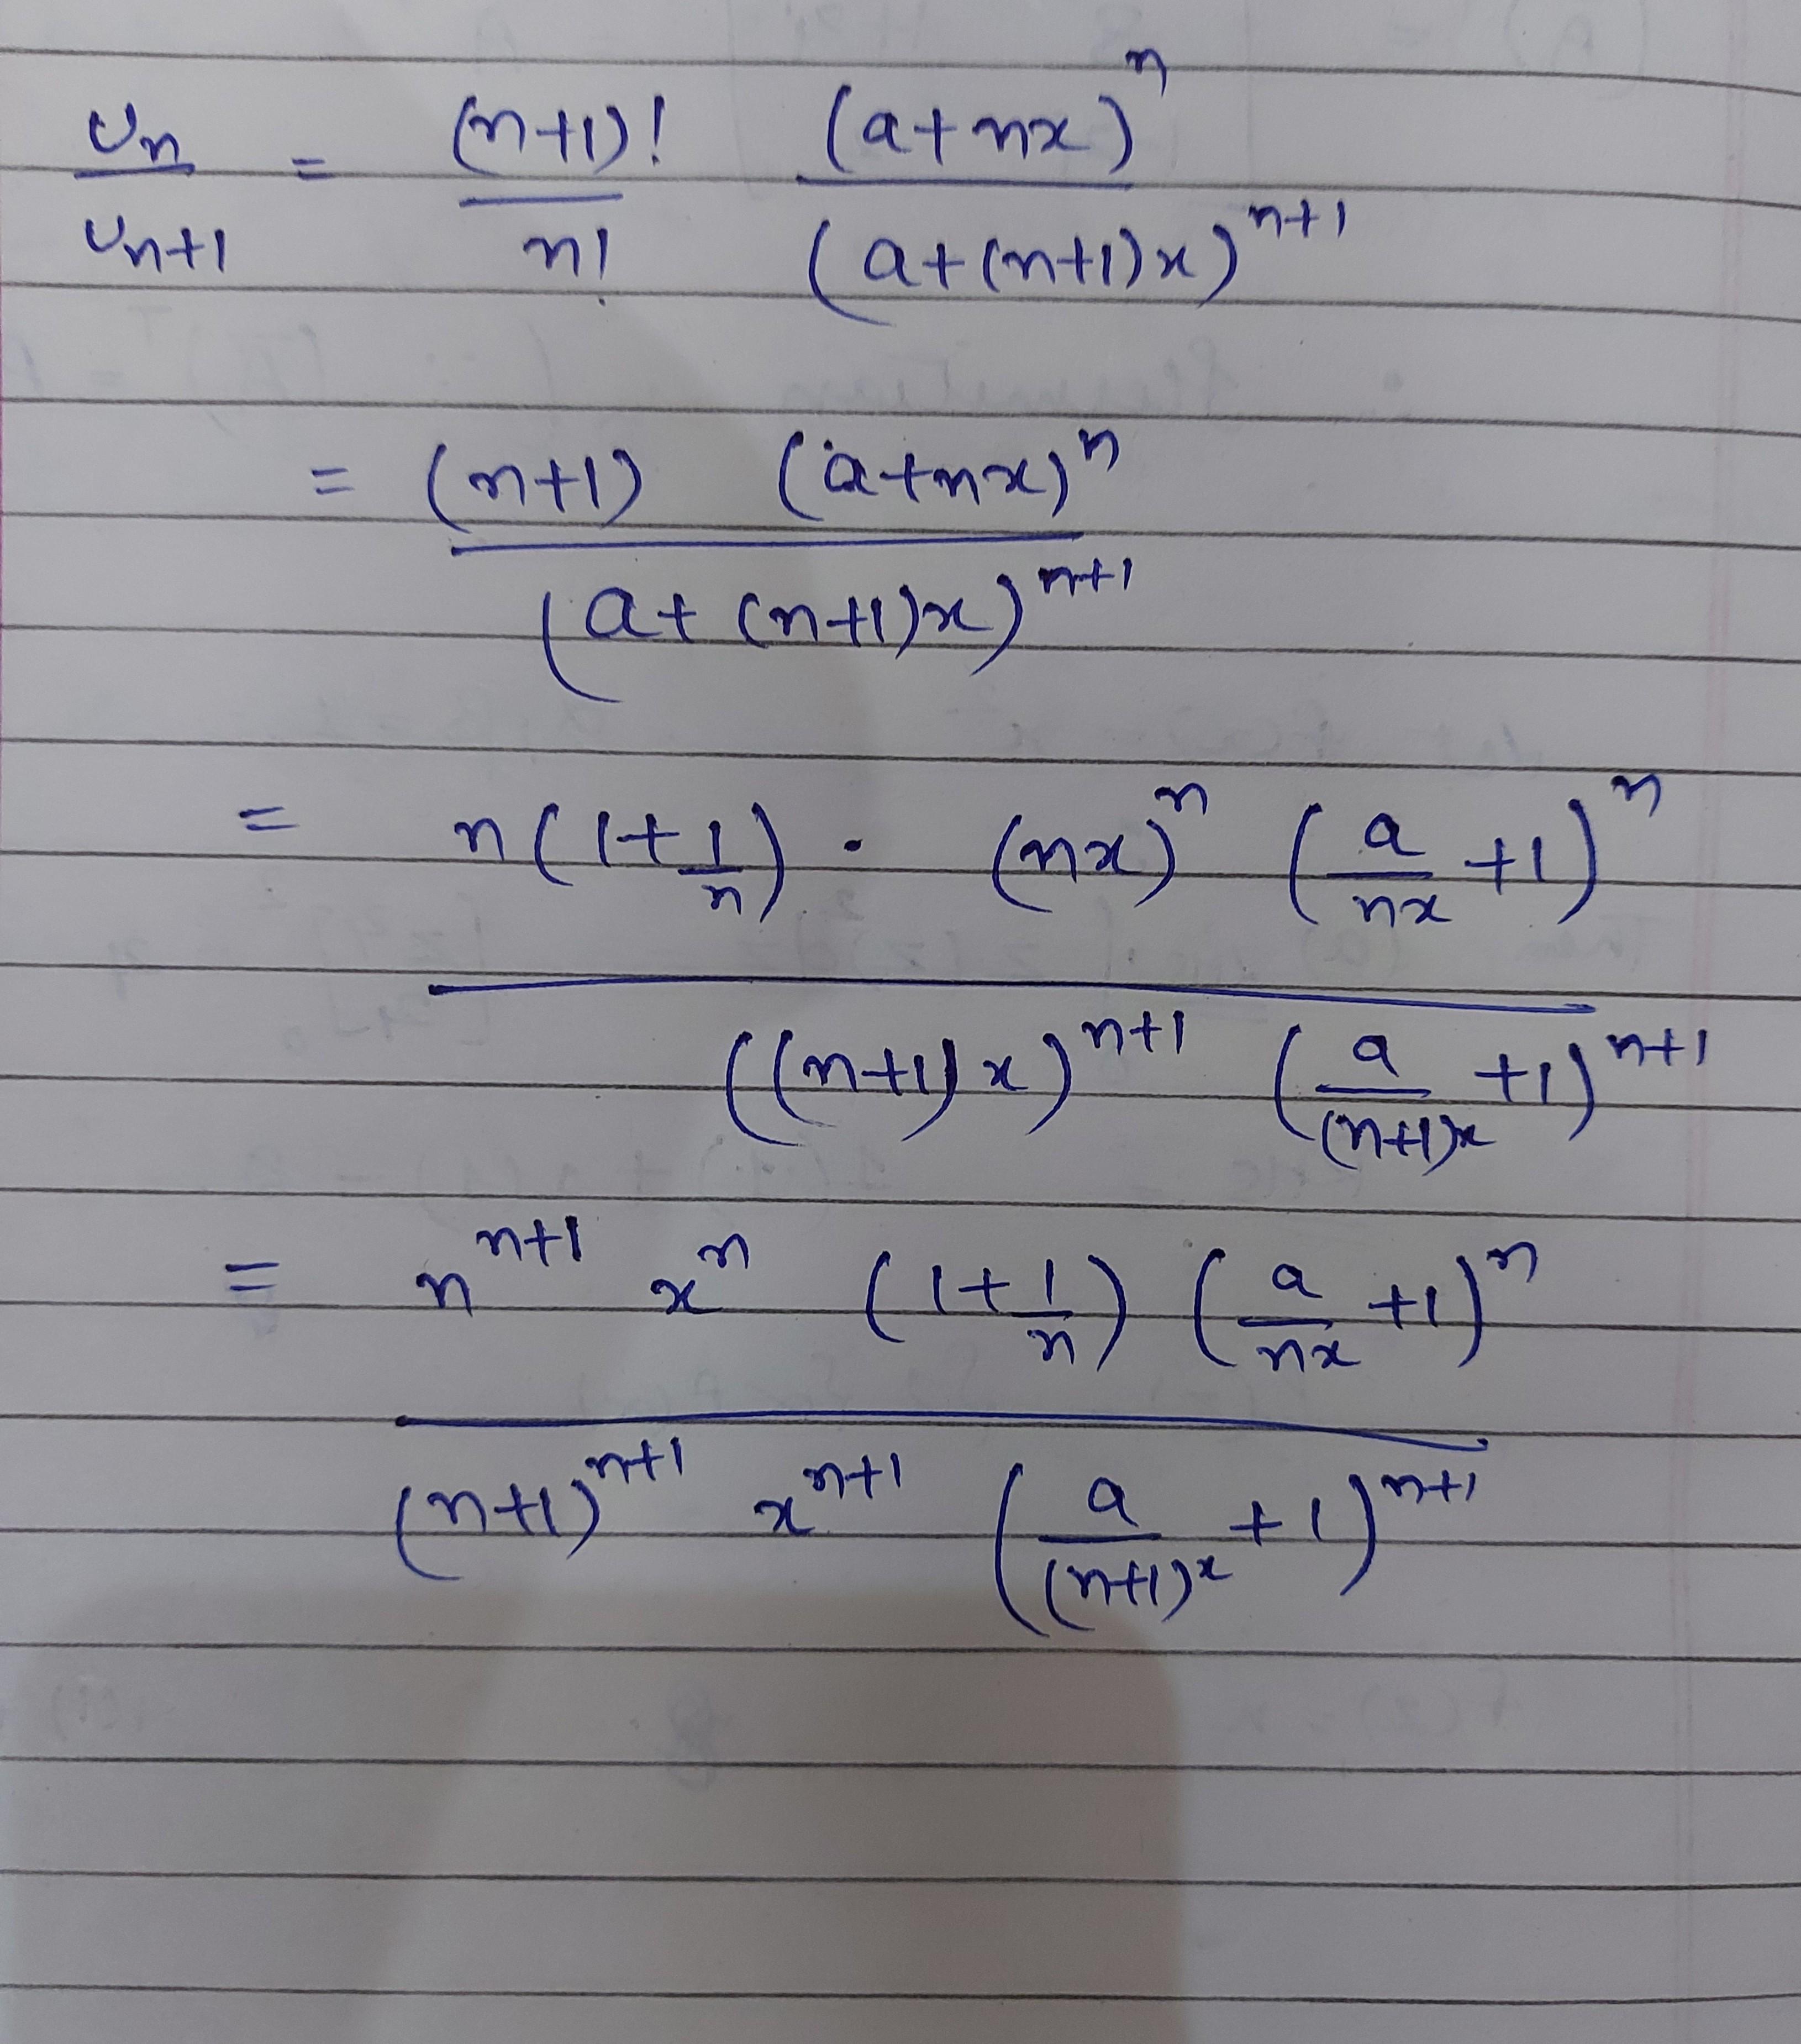 Un/Un+1 = (n+1)!/n! (a+nx)^n/(a+(n+1)x)^n+1
= (n+1) (a+nx)^n/(a+(n+1)x)^n+1
= n(1+1/n) · (nx)^n (a/nx +1)^n/((n+1)x)^n+1 (a/(n+1)x +1)^n+1
= n^n+1 x^n (1+1/n) (a/nx +1)^n/(n+1)^n+1 x^n+1 (a/(n+1)x +1)^n+1